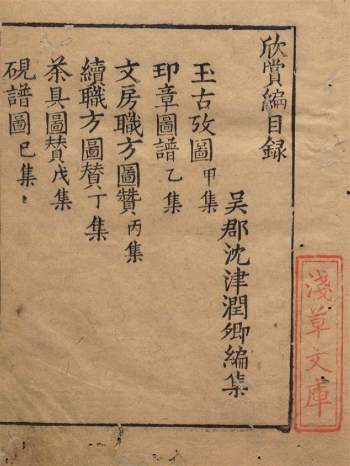 欣賞編目録
吴郡沈津潤卿編集
玉古攷圖甲集
印章圖譜乙集
文房職方圖贊丙集
續職方圖賛丁集
茶具圖賛戊集
硯譜圖已集
淺草文庫